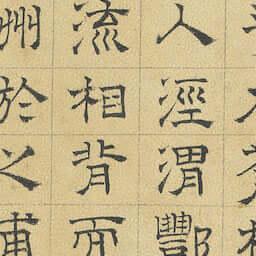 入涇渭酆
流相背而
州於之甫